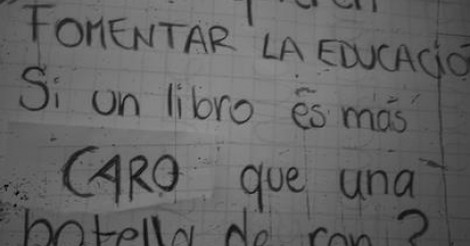 FOMENTAR LA EDUCACIÓ
Si un libro es más
CARO que una
botella de ron?